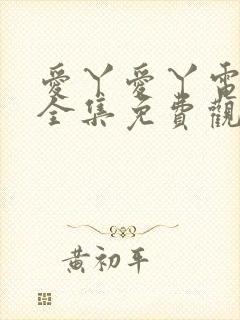 愛丫愛丫電
全集免費觀
黃初平